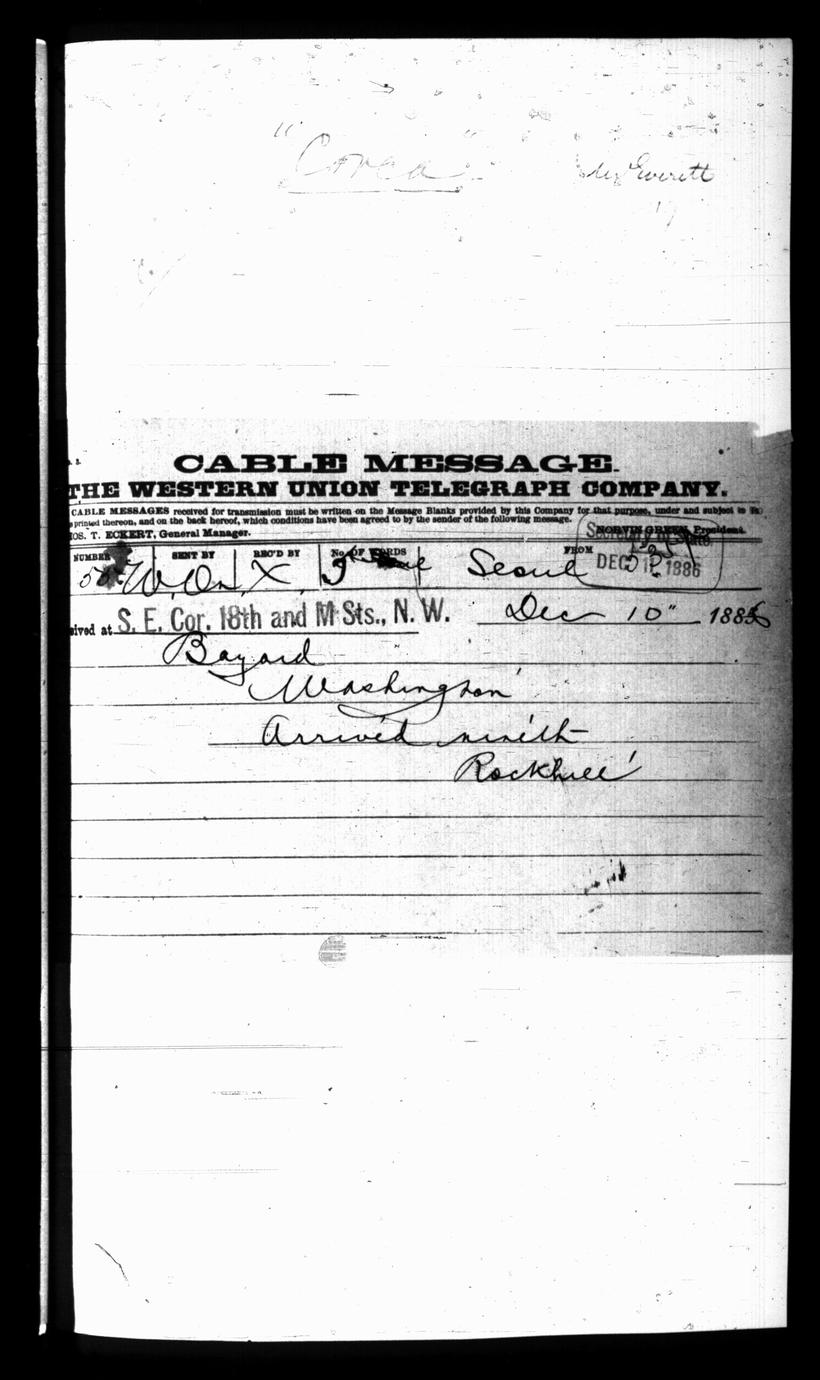 "Corea"
Mr Everett
CABLE MESSAGE.
THE WESTERN UNION TELEGRAPH COMPANY.
CABLE MESSAGES received for transmission must be written on the Message Blanks provided by this Company for that purpose, under and subject to
printed thereon, and on the back hereof, which conditions have been agreed to by the sender of the following message.
THOS. T. ECKERT, General Manager. NORVIN GREEN, President.
NUMBER SENT BY REC'D BY No. OF WORDS FROM
W. On. X. Seoul
DEC 12 1886
eived at S. E. Cor. 18th and M Sts., N. W. Dec 10" 1886
Bayard
Washington
Arrived ninth
Rockhill